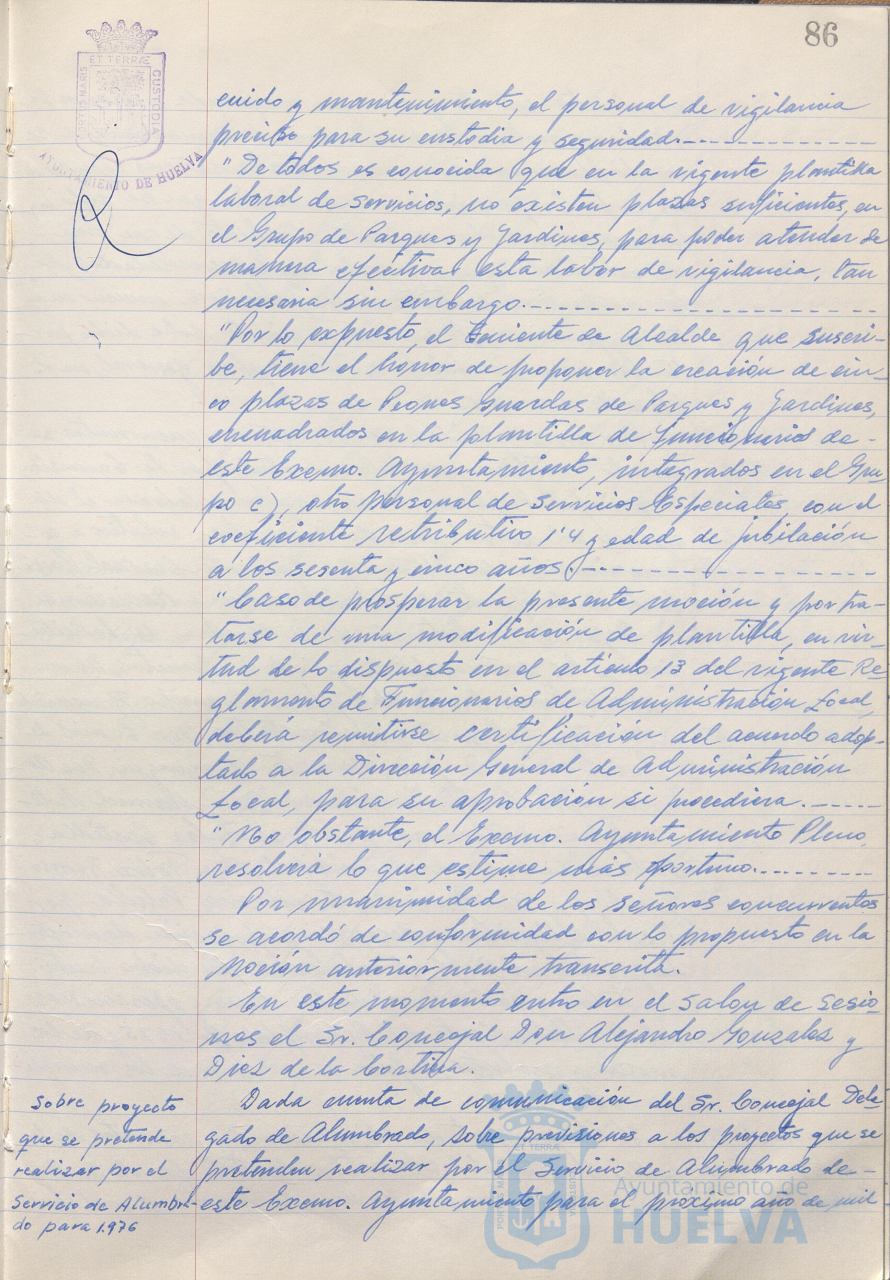 86
PORTUS MARIS ET TERRÆ CUSTODIA
AYUNTAMIENTO DE HUELVA
cuido y mantenimiento, el personal de vigilancia
preciso para su custodia y seguridad.-
"De todos es conocida que en la vigente plantilla
laboral de servicios, no existen plazas suficientes, en
el Grupo de Parques y Jardines, para poder atender de
manera efectiva esta labor de vigilancia, tan
necesaria sin embargo.-
"Por lo expuesto, el Teniente de Alcalde que suscri-
be, tiene el honor de proponer la creación de cin-
co plazas de Peones Guardas de Parques y Jardines,
encuadrados en la plantilla de funcionarios de-
este Excmo. Ayuntamiento, integrados en el Gru-
po c), otro personal de Servicios Especiales, con el
coeficiente retributivo 1'4 y edad de jubilación
a los sesenta y cinco años.-
"Caso de prosperar la presente moción y por tra-
tarse de una modificación de plantilla, en vir-
tud de lo dispuesto en el articulo 13 del vigente Re-
glamento de Funcionarios de Administración Local,
deberá remitirse certificación del acuerdo adop-
tado a la Dirección General de Administración
Local, para su aprobación si procediera.-
"No obstante, el Excmo. Ayuntamiento Pleno,
resolverá lo que estime más oportuno.-
Por unanimidad de los señores concurrentes
se acordó de conformidad con lo propuesto en la
Moción anteriormente transcrita.
En este momento entro en el Salon de Sesio-
nes el Sr. Concejal Don Alejandro Gonzalez y
Diez de la Cortina.
Sobre proyecto
que se pretende
realizar por el
Servicio de Alumbra-
do para 1.976
Dada cuenta de comunicación del Sr. Concejal Dele-
gado de Alumbrado, sobre previsiones a los proyectos que se
pretenden realizar por el Servicio de Alumbrado de-
este Excmo. Ayuntamiento para el proximo año de mil
Ayuntamiento de
HUELVA